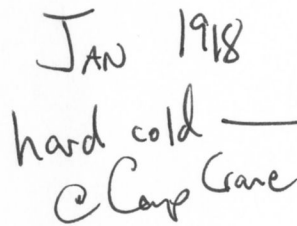 JAN 1918
hard cold —
@ Camp Crane